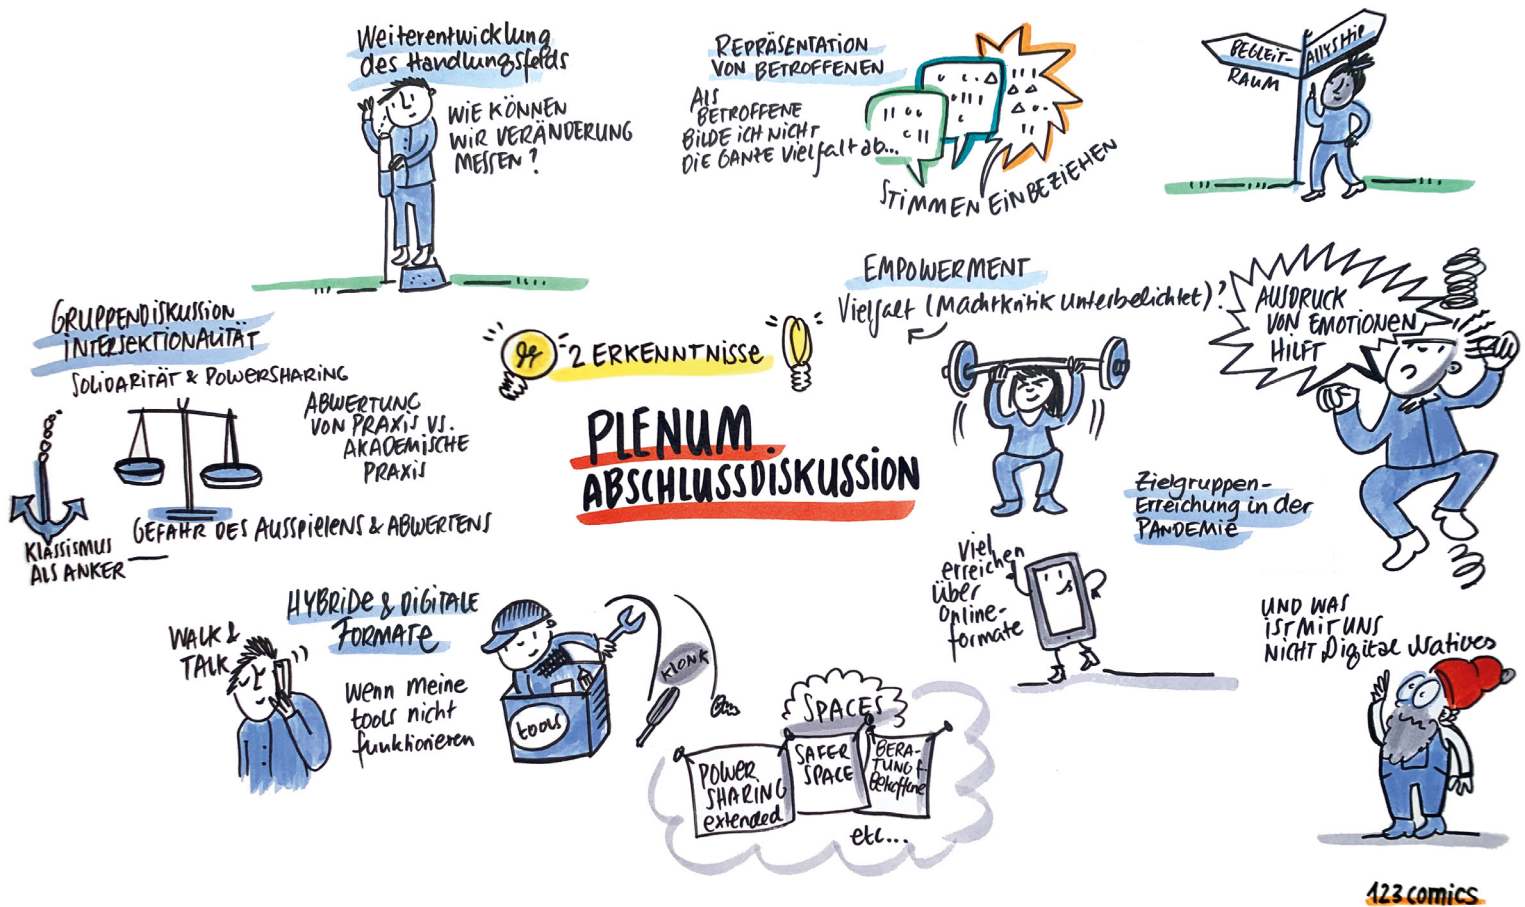 Weiterentwicklung
des Handlungsfelds
WIE KÖNNEN
WIR VERÄNDERUNG
MESSEN?
REPRÄSENTATION
VON BETROFFENEN
ALS
BETROFFENE
BILDE ICH NICHT
DIE GANZE Vielfalt ab...
STIMMEN EINBEZIEHEN
BEGLEIT-
RAUM
AllySHIP
GRUPPENDISKUSSION
INTERSEKTIONALITÄT
SOLIDARITÄT & POWERSHARING
ABWERTUNG
VON PRAXIS VS.
AKADEMISCHE
PRAXIS
GEFAHR DES AUSSPIELENS & ABWERTENS
KLASSISMUS
ALS ANKER
2 ERKENNTNISSE
PLENUM.
ABSCHLUSSDISKUSSION
EMPOWERMENT
Vielfalt (Machtkritik unterbelichtet)?
AUSDRUCK
VON EMOTIONEN
HILFT
Zielgruppen-
Erreichung in der
PANDEMIE
Viel
erreichen
über
online-
formate
UND WAS
IST MIT UNS
NICHT Digital Natives
HYBRIDE & DIGITALE
FORMATE
WALK &
TALK
Wenn meine
tools nicht
funktionieren
tools
KLONK
SPACES
POWER
SHARING
extended
SAFER
SPACE
BERA-
TUNG f.
Betroffene
etc...
123comics